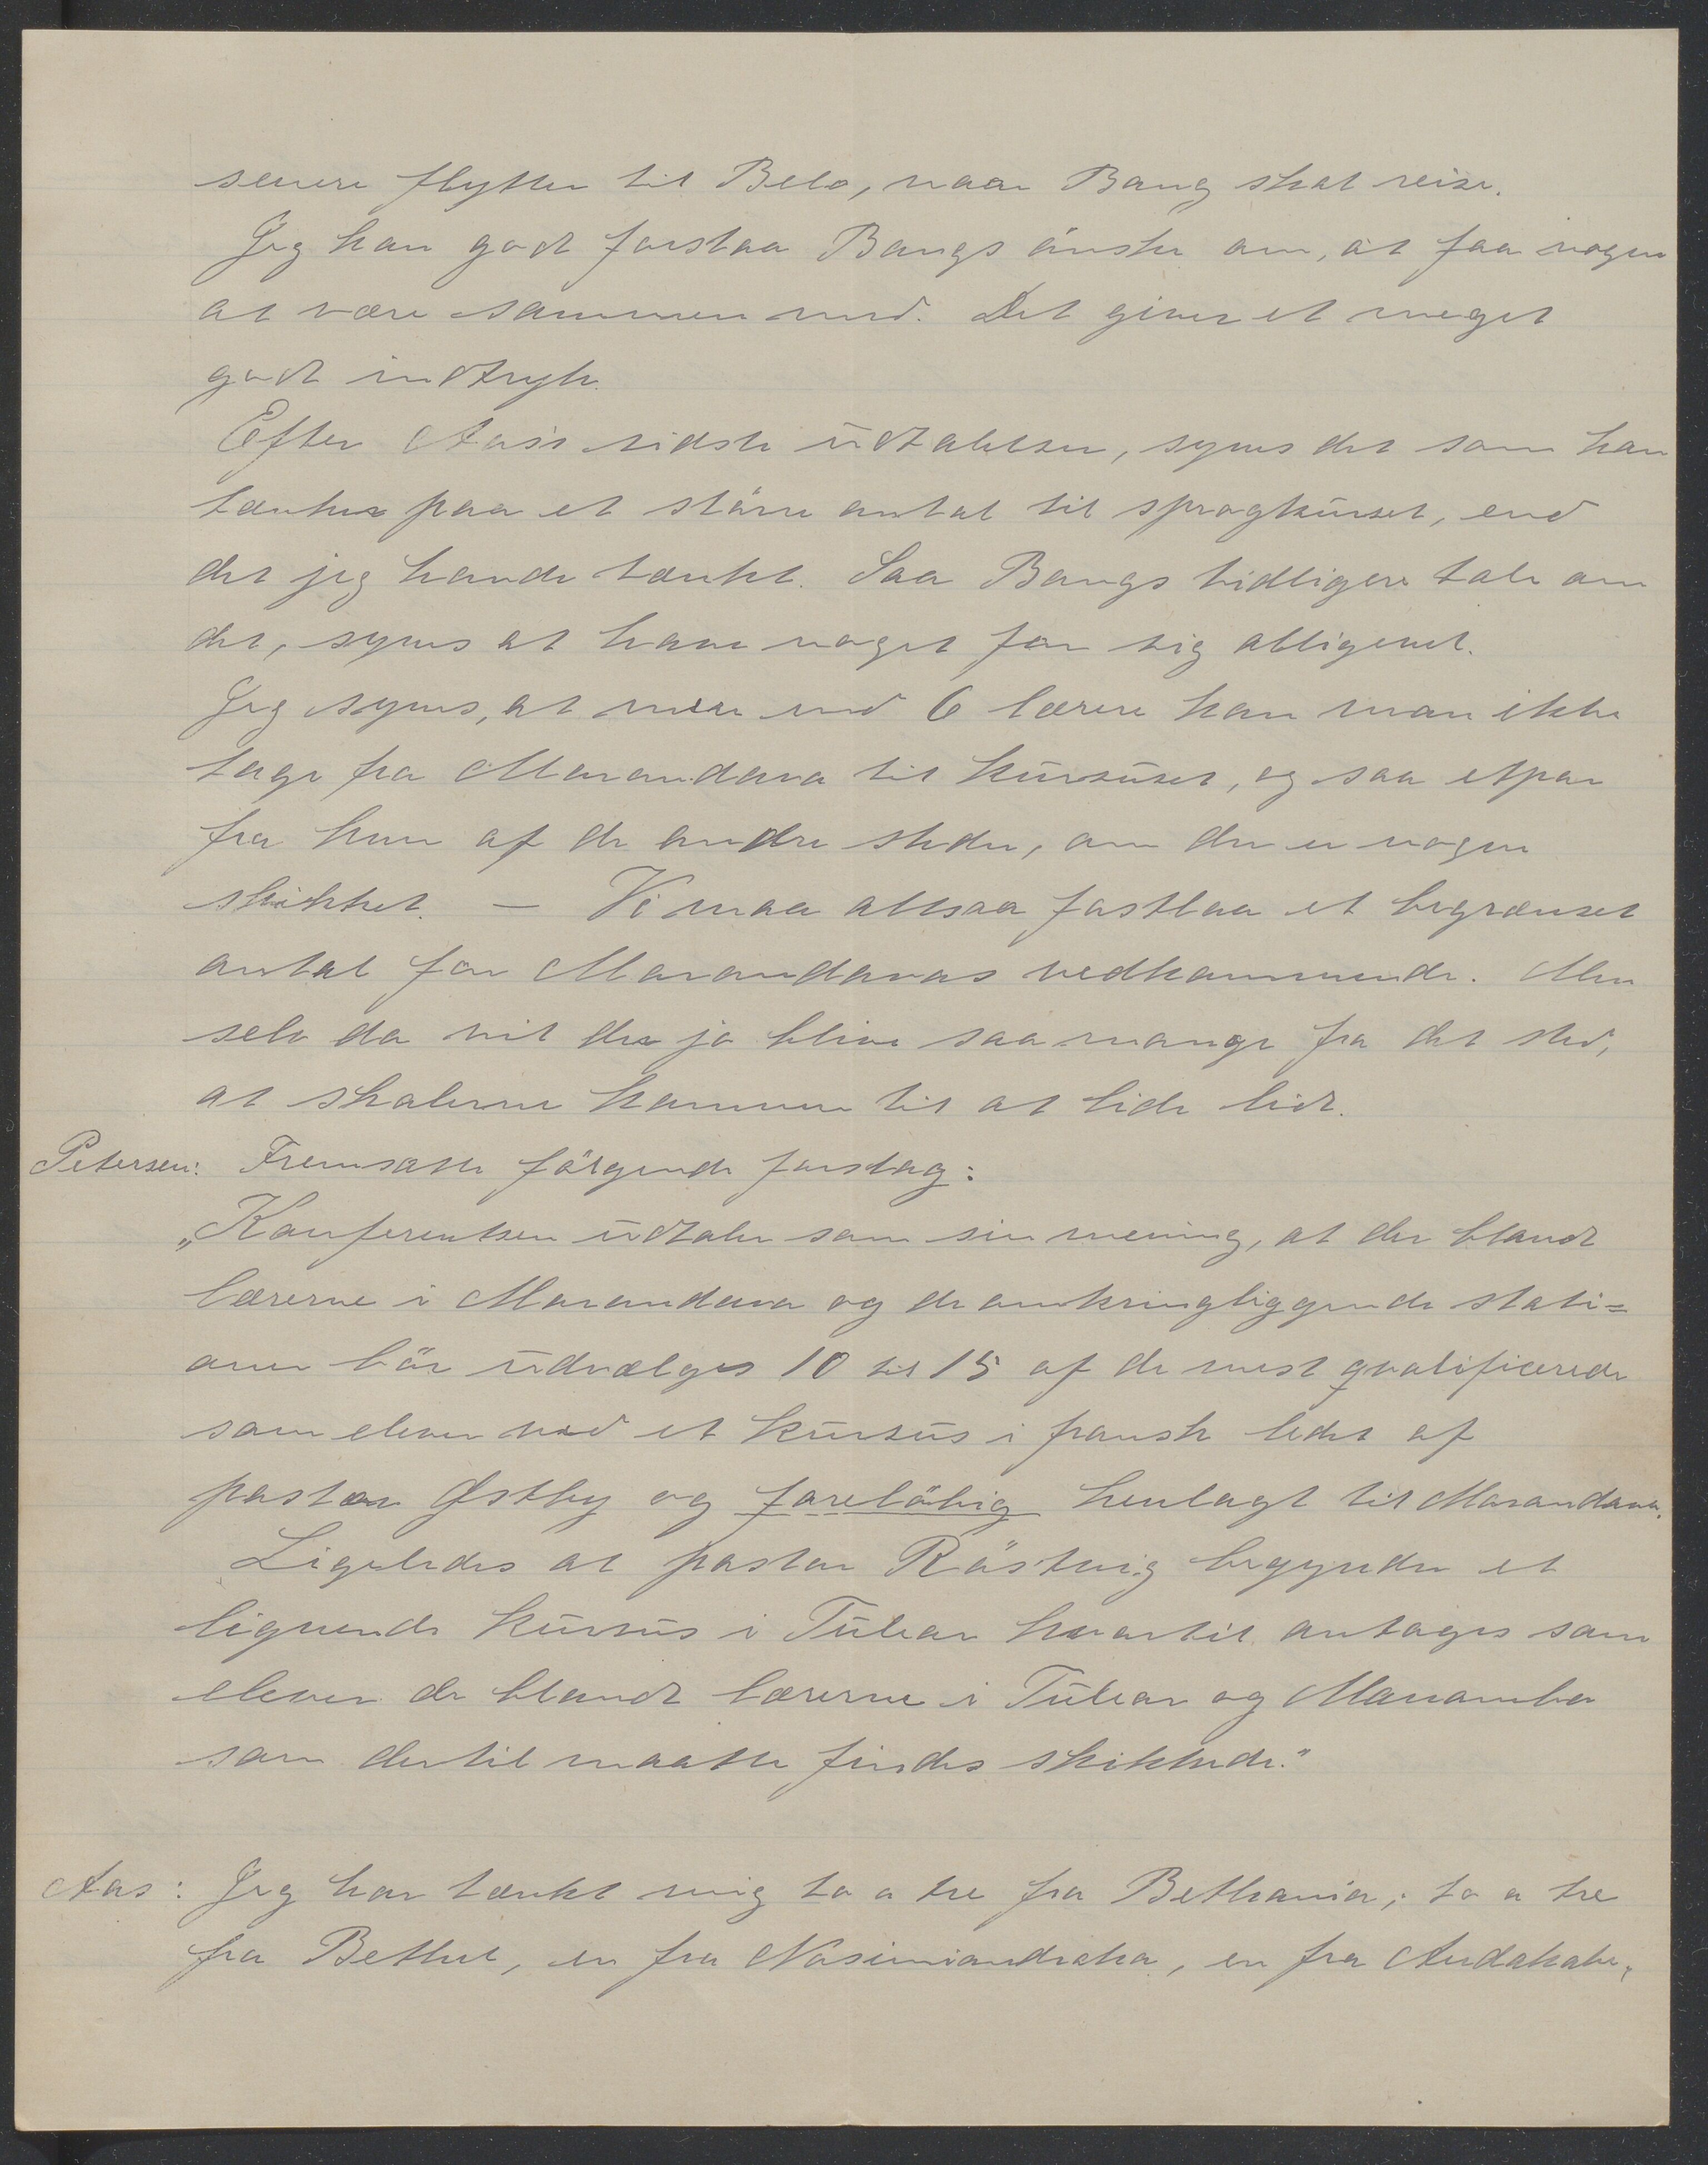 senere flytter til Belo, naar Bang skal reise.
Jeg kan godt forstaa Bangs önske om, at faa nogen
at være sammen med. Det giver et meget
godt indtryk.
Efter Aas's sidste udtalelser, synes det som han
tænker paa et större antal til sprogkurset, end
det jeg havde tænkt. Saa Bangs tidligere tale om
det, synes at have noget for sig alligevel.
Jeg synes, at mere end 6 lærere kan man ikke
tage fra Morondava til kursuset, og saa etpar
fra hver af de andre steder, om der er nogen
skikket. — Vi maa altsaa fastslaa et begrænset
antal for Morondavas vedkommende. Men
selv da vil der jo blive saa mange fra det sted,
at skolerne kommer til at lide lidt.
Petersen: Fremsatte fölgende forslag:
„Konferentsen udtaler som sin mening, at der blandt
lærerne i Morondava og de omkringliggende stati=
oner bör udvælges 10 til 15 af de mest qvalificerede
som elever ved et kursus i fransk ledet af
pastor Østby og forelöbig henlagt til Morondava.
Ligeledes at pastor Röstvig begynder et
lignende kursus i Tulear hvortil antages som
elever de blandt lærerne i Tulear og Manombo
som dertil maatte findes skikkede."
Aas: Jeg har tænkt mig to a tre fra Bethania; to a tre
fra Bethel, en fra Nosimiandroka, en fra Andakabe,